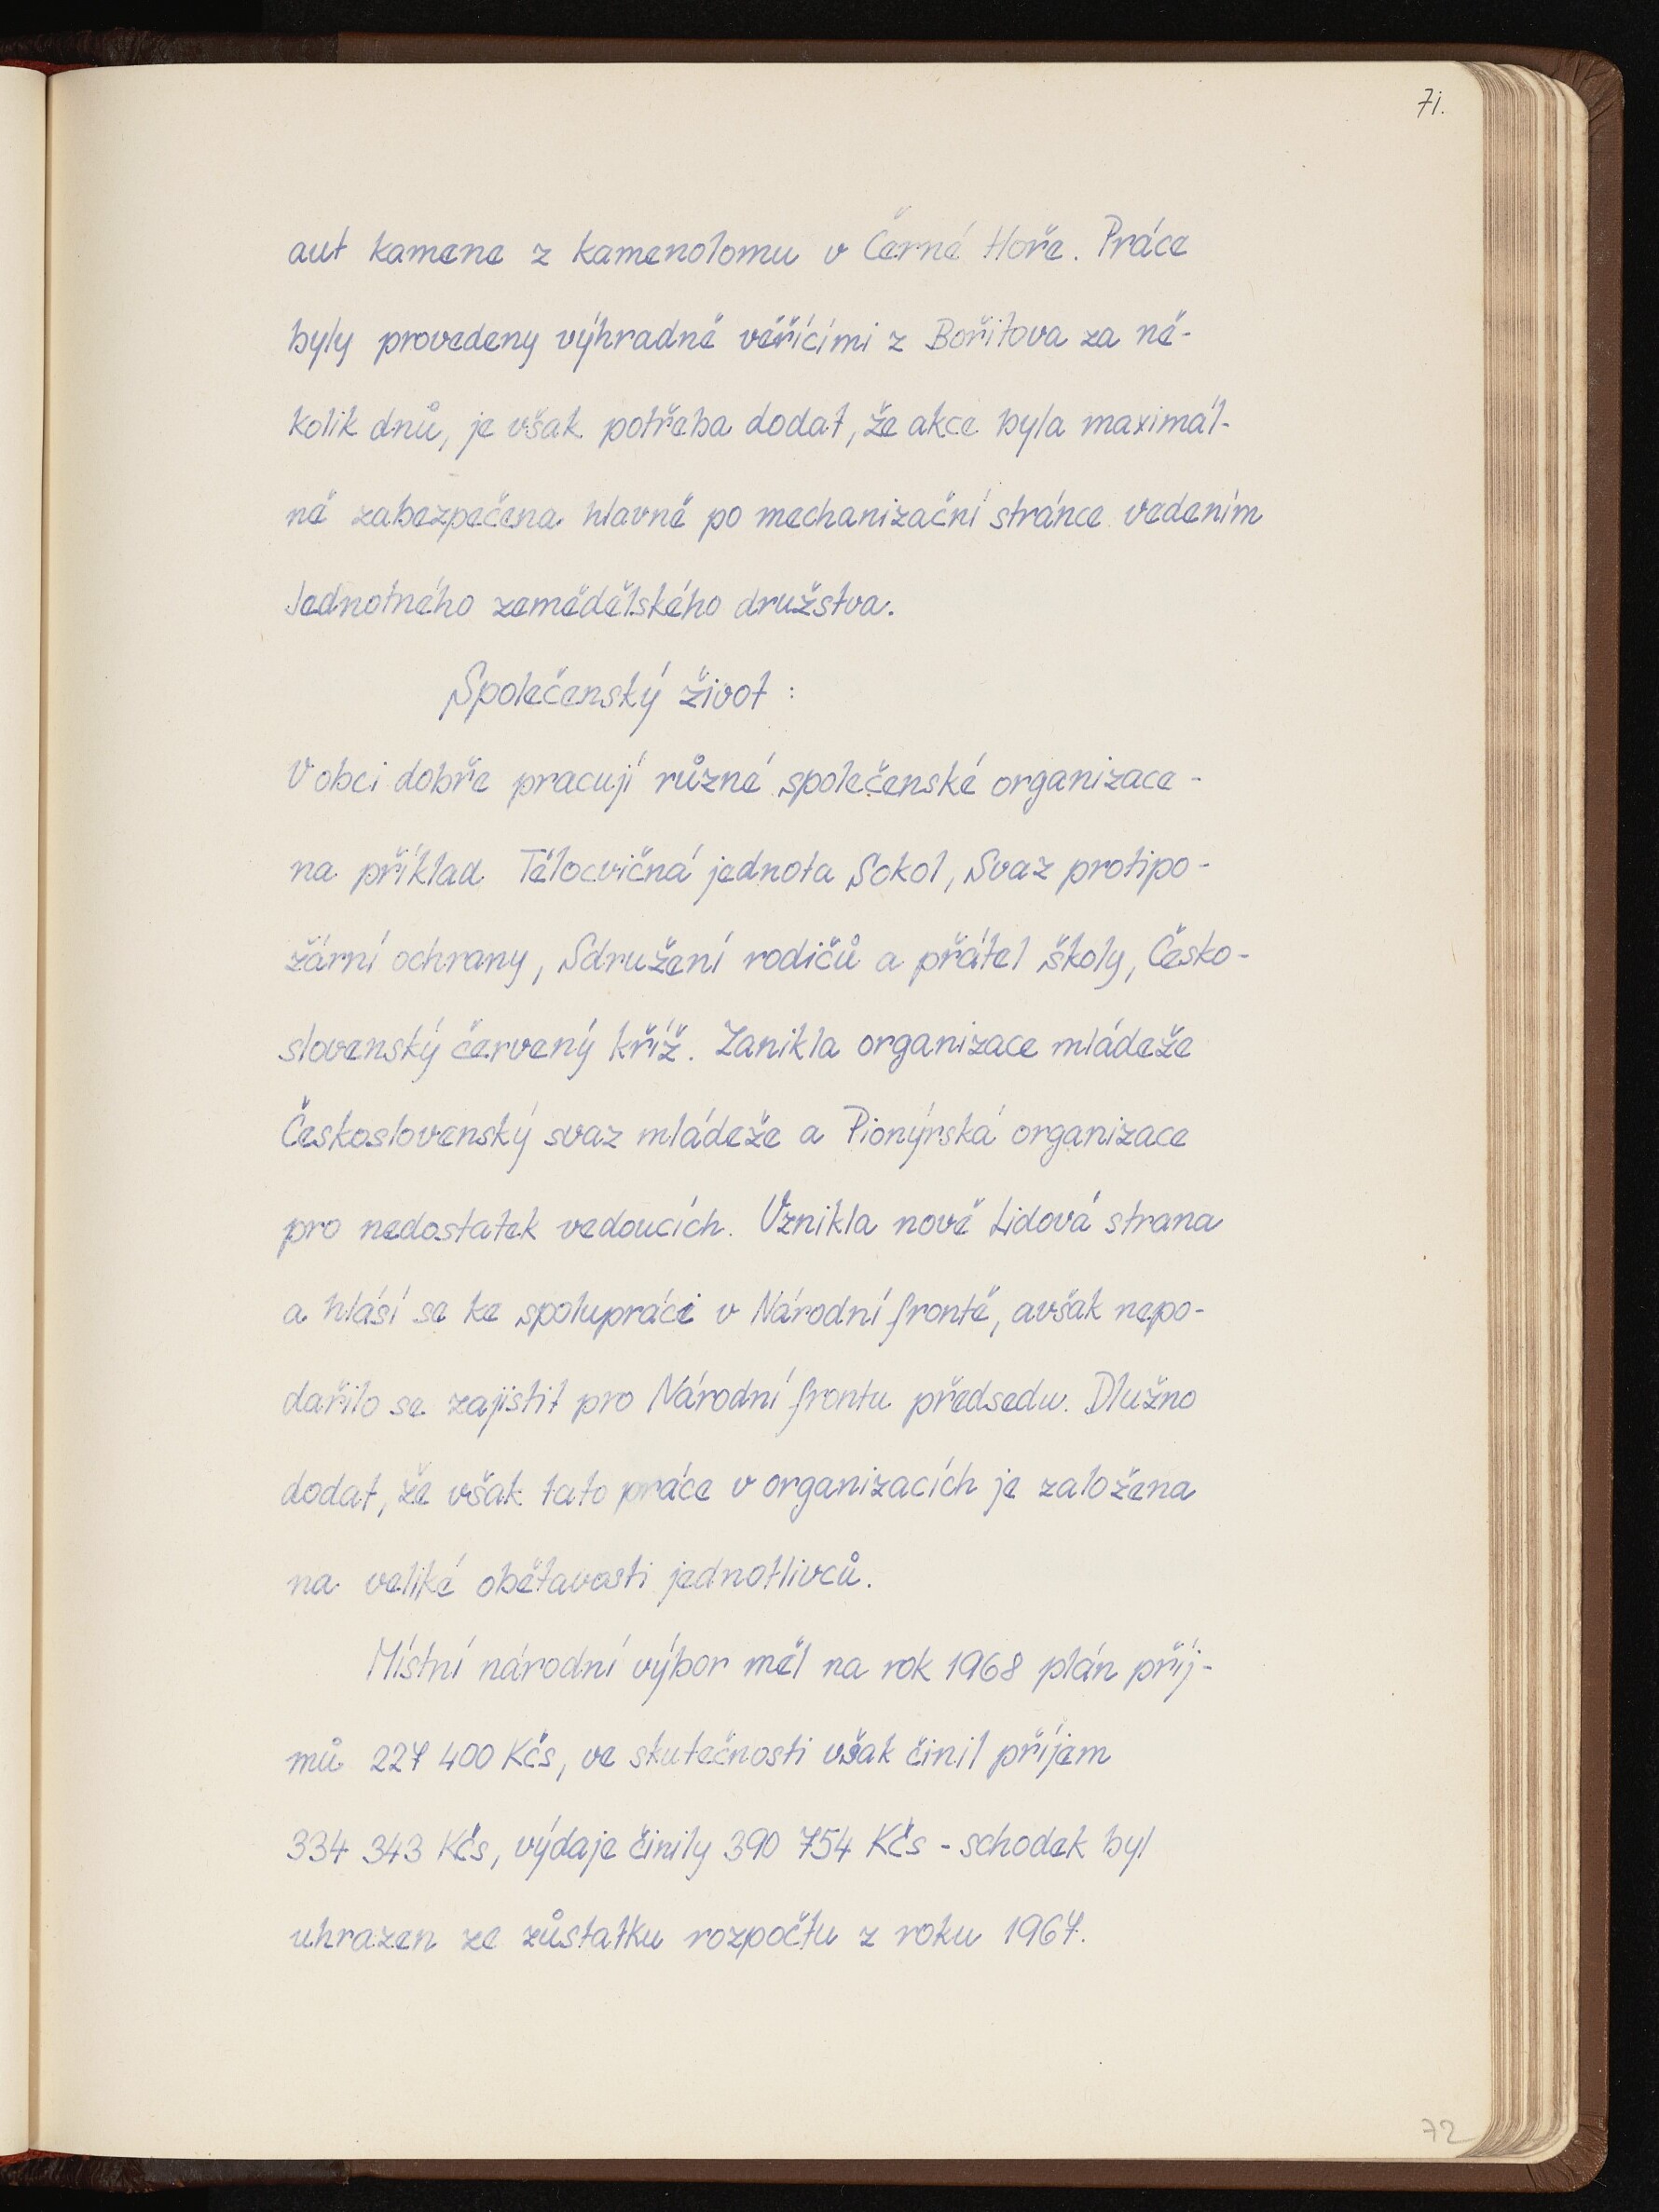 71.
aut kamene z kamenolomu v Černé Hoře. Práce
byly provedeny výhradně věřícími z Bořitova za ně-
kolik dnů, je však potřeba dodat, že akce byla maximál-
ně zabezpečena hlavně po mechanizační stránce vedením
Jednotného zemědělského družstva.
Společenský život :
V obci dobře pracují různé společenské organizace -
na příklad Tělocvičná jednota Sokol, Svaz protipo-
žární ochrany, Sdružení rodičů a přátel školy, Česko-
slovenský červený kříž. Zanikla organizace mládeže
Československý svaz mládeže a Pionýrská organizace
pro nedostatek vedoucích. Vznikla nově Lidová strana
a hlásí se ke spolupráci v Národní frontě, avšak nepo-
dařilo se zajistit pro Národní frontu předsedu. Dlužno
dodat, že však tato práce v organizacích je založena
na veliké obětavosti jednotlivců.
Místní národní výbor měl na rok 1968 plán příj-
mů 227 400 Kčs, ve skutečnosti však činil příjem
334 343 Kčs, výdaje činily 390 754 Kčs - schodek byl
uhrazen ze zůstatku rozpočtu z roku 1967.
72